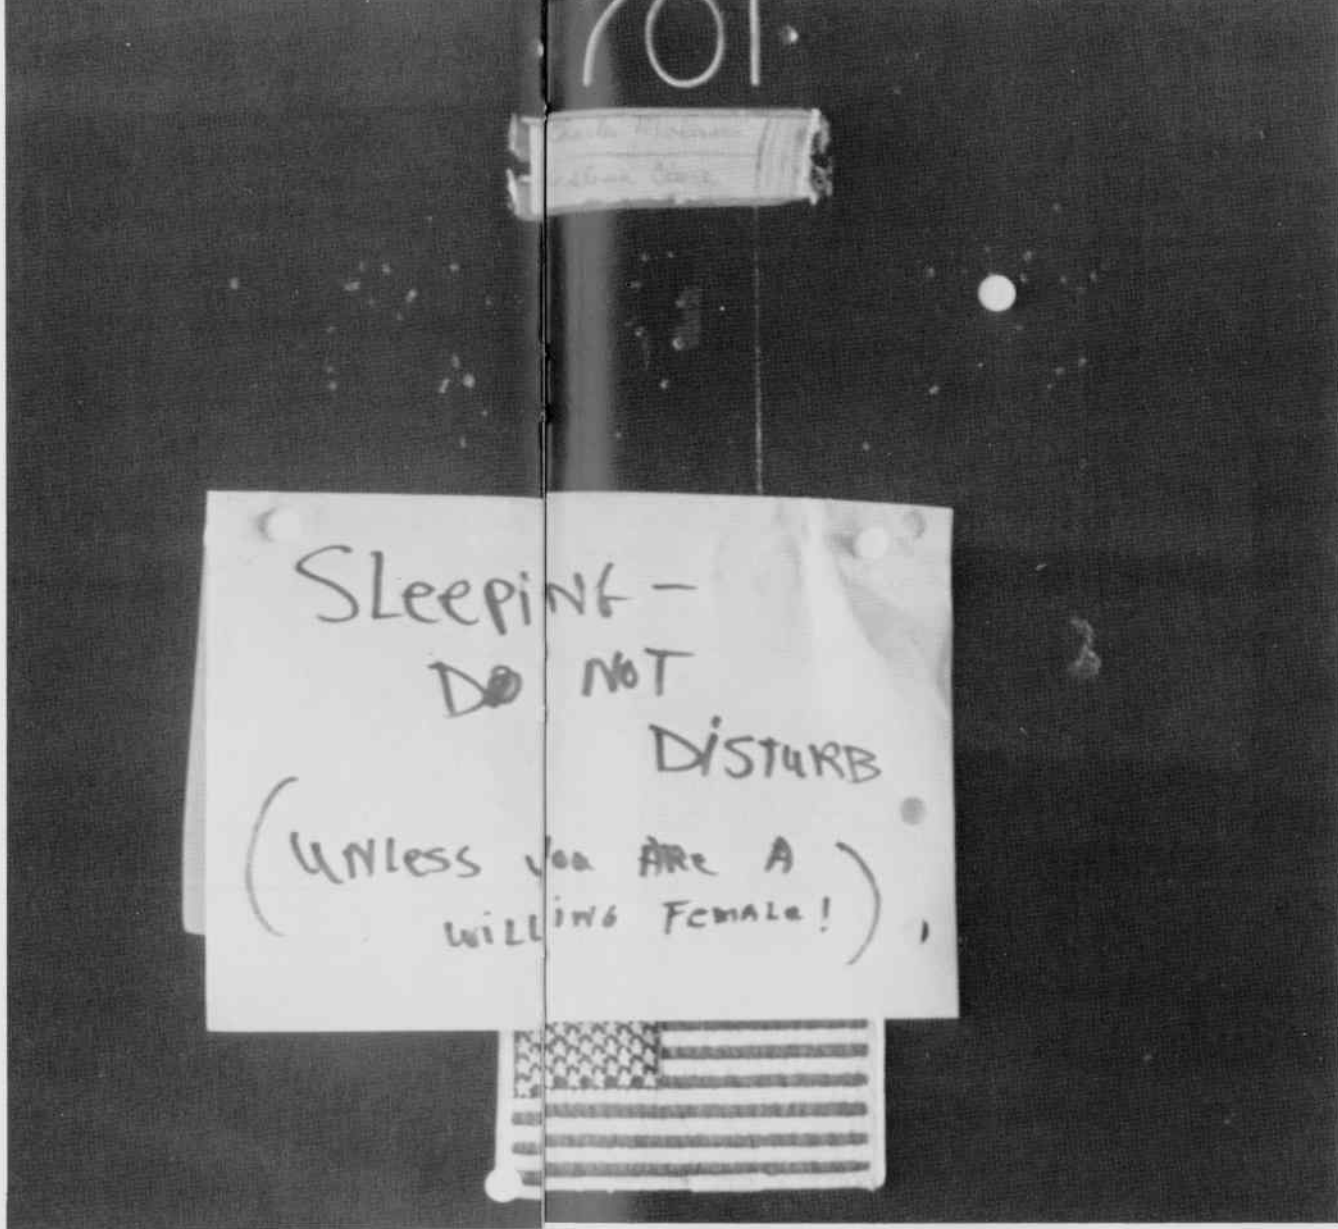 701
SLeepiNG -
DO NOT
DiSTURB
(UNLess you ARe A
WiLLiNG FemALe!)